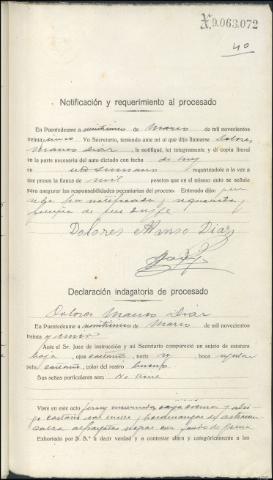 Nº 9.063.072
40
Notificación y requerimiento al procesado
En Puenteáreas a veinticinco de Marzo de mil novecientos
veinte y cinco Yo Secretario, teniendo ante mí al que dijo llamarse Dolores
Díaz le notifiqué, leí íntegramente y dí copia literal
de la parte necesaria del auto dictado con fecha de hoy
requiriéndole a la vez a
que preste la fianza de mil pesetas que en el mismo auto se señala
para asegurar las responsabilidades pecuniarias del proceso. Enterado dijo: que
se da por notificada y requerida y
firma de que doy fe
Dolores Alonso Díaz
Declaración indagatoria de procesado
Dolores Díaz
En Puenteáreas a veinticinco de Marzo de mil novecientos
veinte y cinco
Ante el Sr. Juez de instrucción y mi Secretario compareció un sujeto de estatura
baja, ojos castaños, nariz boca
pelo castaño, color del rostro bueno
Sus señas particulares son: No tiene
Viste en este acto
Exhortado por S. S.ª a decir verdad y a contestar afirma y categóricamente a las